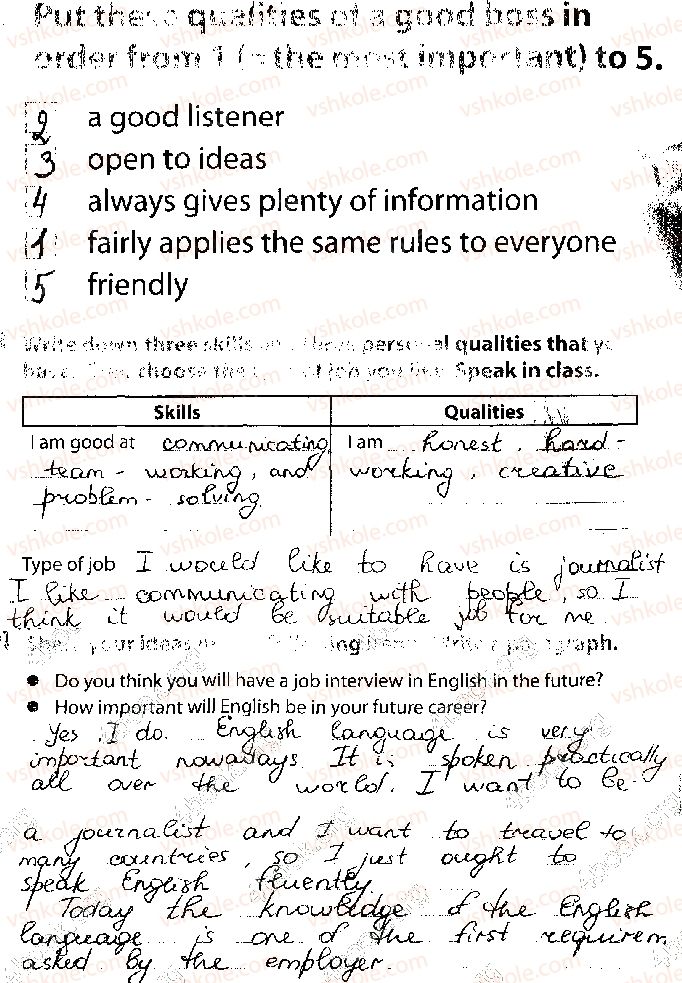 Put these qualities of a good boss in
order from 1 (= the most important) to 5.
2 a good listener
3 open to ideas
4 always gives plenty of information
1 fairly applies the same rules to everyone
5 friendly
Write down three skills and three personal qualities that you
have. choose the type of job you like. Speak in class.
Skills Qualities
I am good at communicating, I am honest, hard-
team - working, and working, creative
problem - solving.
Type of job I would like to have is journalist
I like communicating with people, so I
think it would be suitable job for me.
Share your ideas Write a paragraph.
• Do you think you will have a job interview in English in the future?
• How important will English be in your future career?
Yes, I do. English language is very
important nowadays. It is spoken practically
all over the world. I want to be
a journalist and I want to travel to
many countries, so I just ought to
speak English fluently.
Today the knowledge of the English
language is one of the first requirem
asked by the employer.
vshkole.com